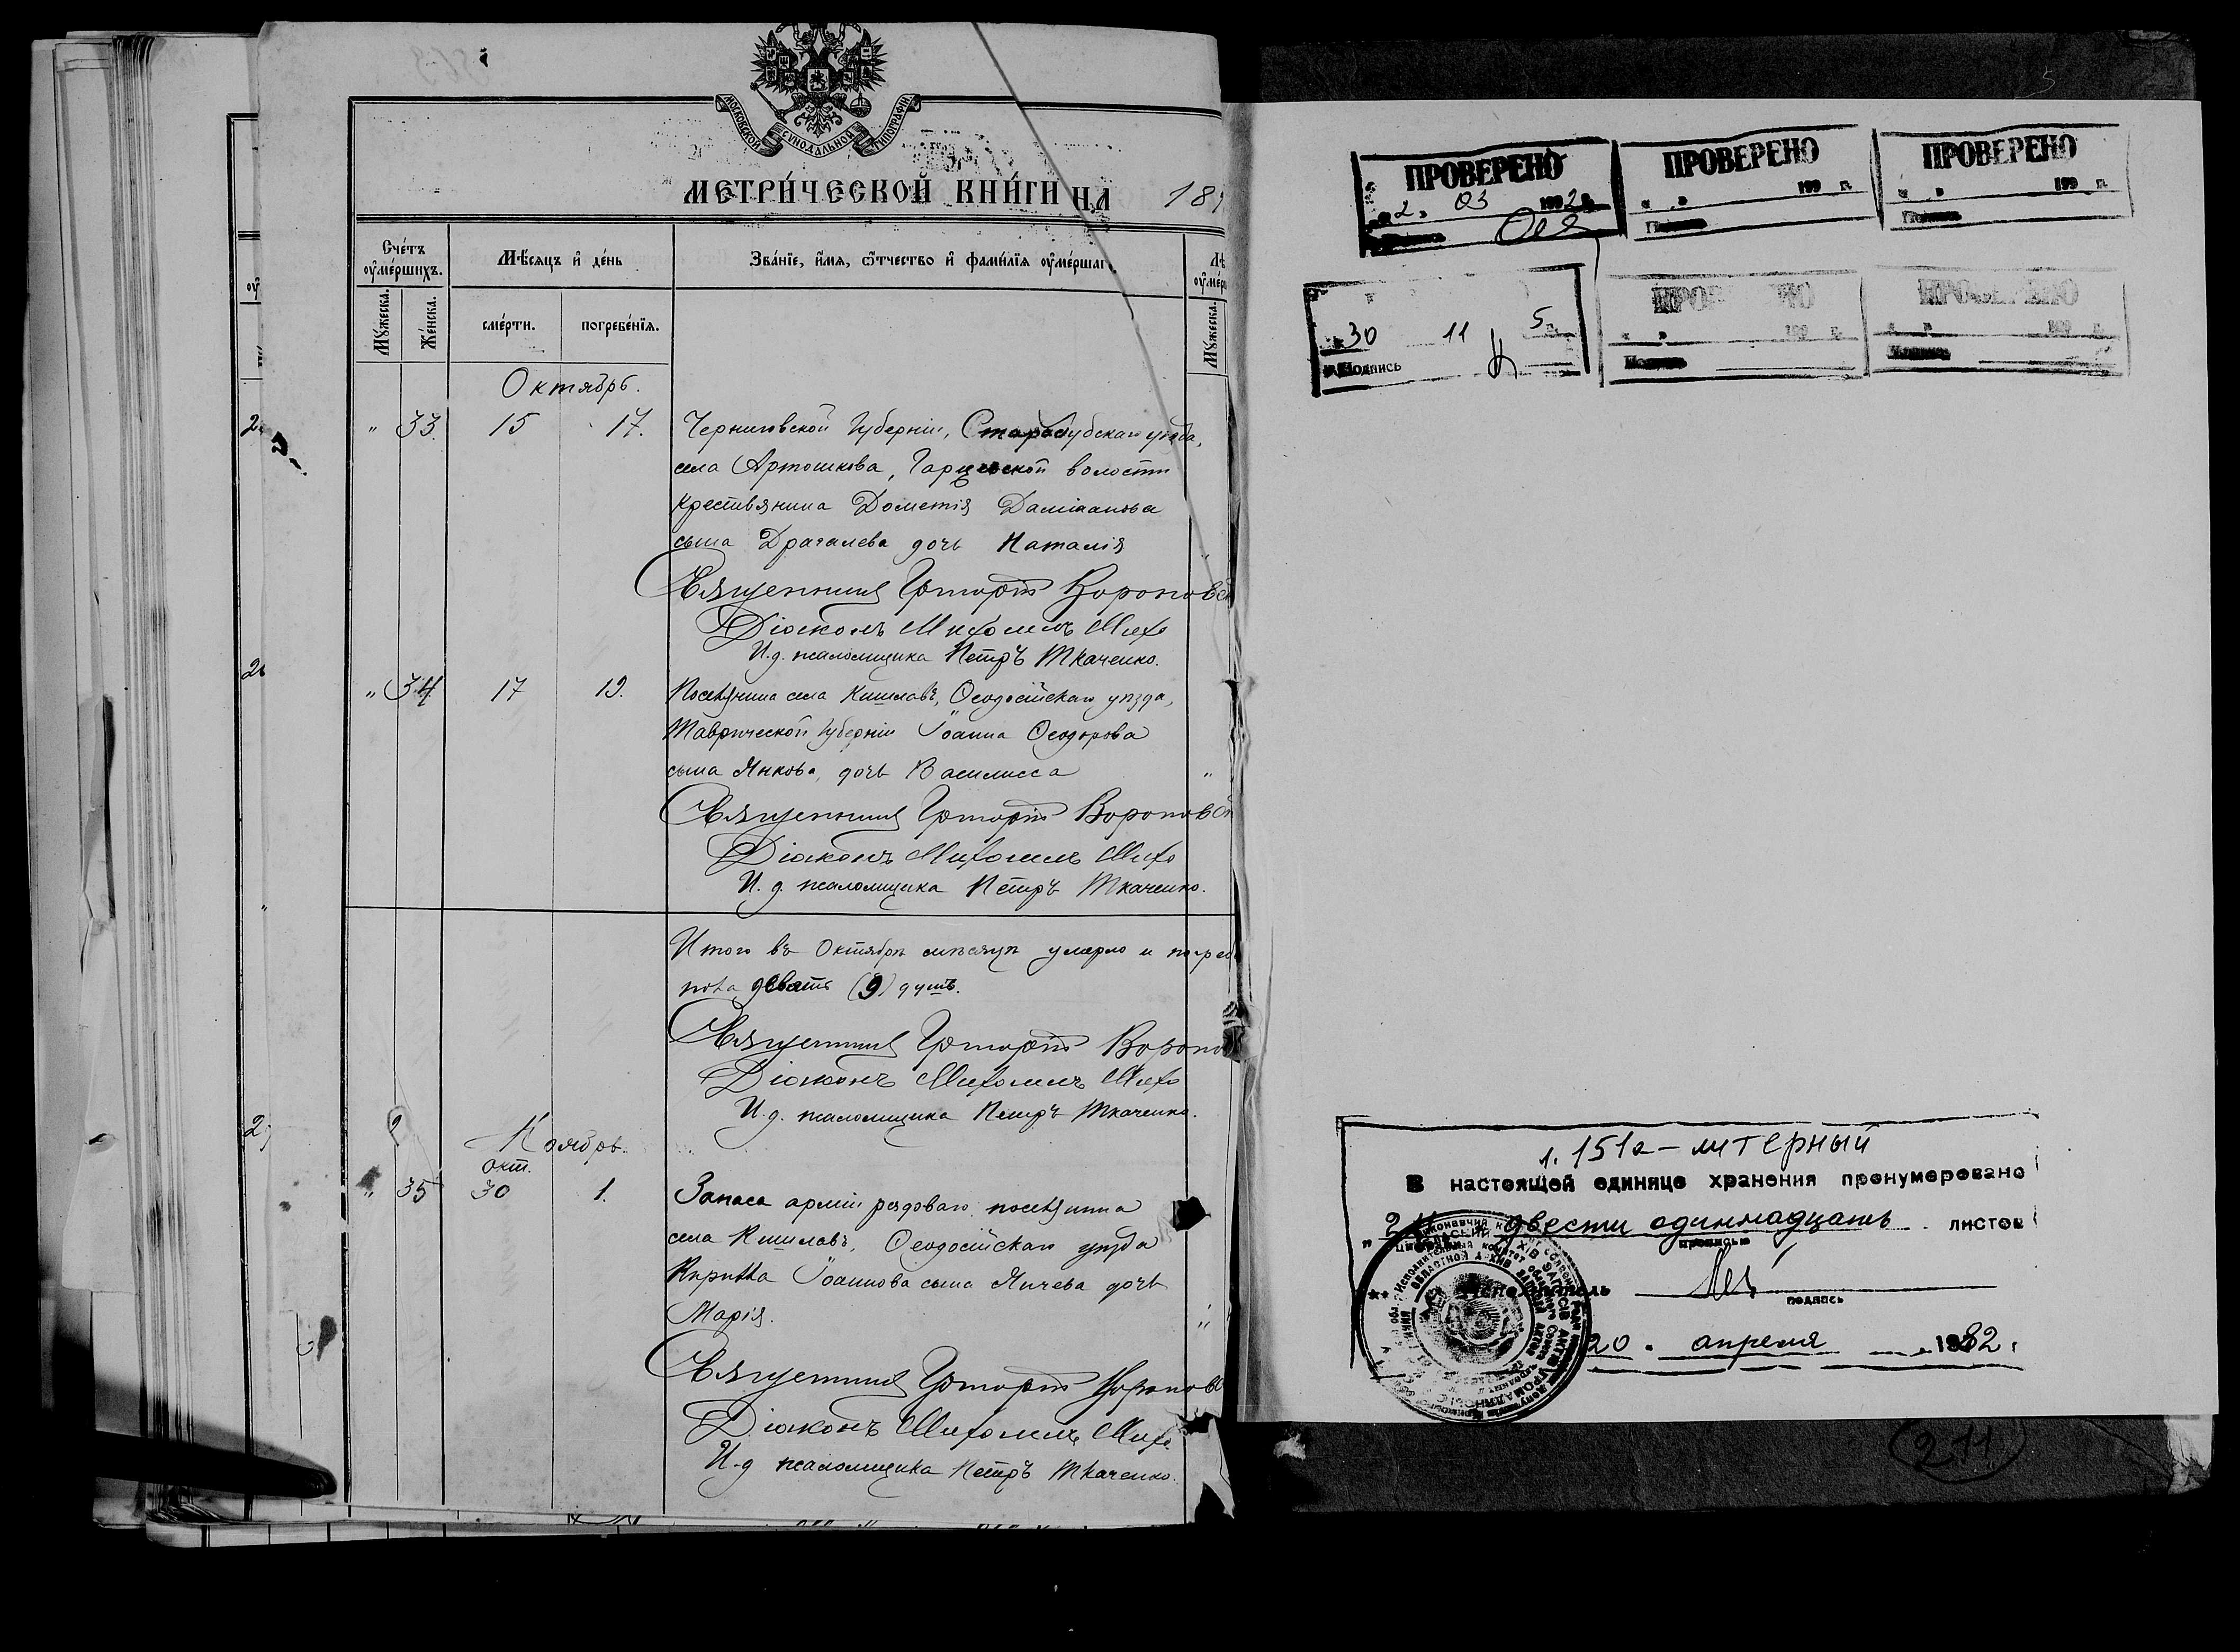 МОСКОВСКОЙ СѴНОДАЛЬНОЙ ТИПОГРАФІИ
МЕТРИ́ЧЕСКОЙ КНИ́ГИ НА 189
Сче́тъ оу҆ме́ршихъ.
Мѣ́сяцъ и҆ де́нь
Зва́нїе, и҆́мя, ѻ҆́тчество и҆ фами́лїя оу҆ме́ршаг
Лѣ
оу҆ме́р
Мꙋ́жеска.
Же́нска.
сме́рти.
погребе́нїя.
Мꙋ́жеска.
Октябрь.
" 33. 15 17. Черниговской Губерніи, Стародубскаго уѣзда,
села Артюшкова, Гарцевской волости
крестьянина Дометія Даміанова
сына Драгалева дочь Наталія
Священникъ Григорій Вороновск
Діаконъ Михаилъ Михо
И.д. псаломщика Петръ Ткаченко.
" 34 17 19. Поселянина села Кишлавъ, Ѳеодосійскаго уѣзда,
Таврической губерніи Іоанна Ѳеодорова
сына Янкова, дочь Василисса "
Священникъ Григорій Вороновск
Діаконъ Михаилъ Михо
И.д. псаломщика Петръ Ткаченко.
Итого въ Октябрѣ мѣсяцѣ умерло и погреб
девять (9) душъ.
Священникъ Григорій Вороно
Діаконъ Михаилъ Михо
И.д. псаломщика Петръ Ткаченко.
Ноябрь.
окт.
" 35 30 1. Запаса арміи рядоваго поселянина
села Кишлавъ, Ѳеодосійскаго уѣзда
Кирилла Іоаннова сына Янчева дочь
Марія. "
Священникъ Григорій Воронов
Діаконъ Михаилъ Михо
И.д псаломщика Петръ Ткаченко.
ПРОВЕРЕНО
2. 03 1992 г.
ПРОВЕРЕНО
« » 199 г.
ПРОВЕРЕНО
« » 199 г.
30 11 5 г.
Подпись
ПРОВЕРЕНО
« » 199 г.
ПРОВЕРЕНО
« » 199 г.
л. 151а - литерный
В настоящей единице хранения пронумеровано
211 двести одиннадцать листов
прописью
подпись
20 . апреля 1982 г
211